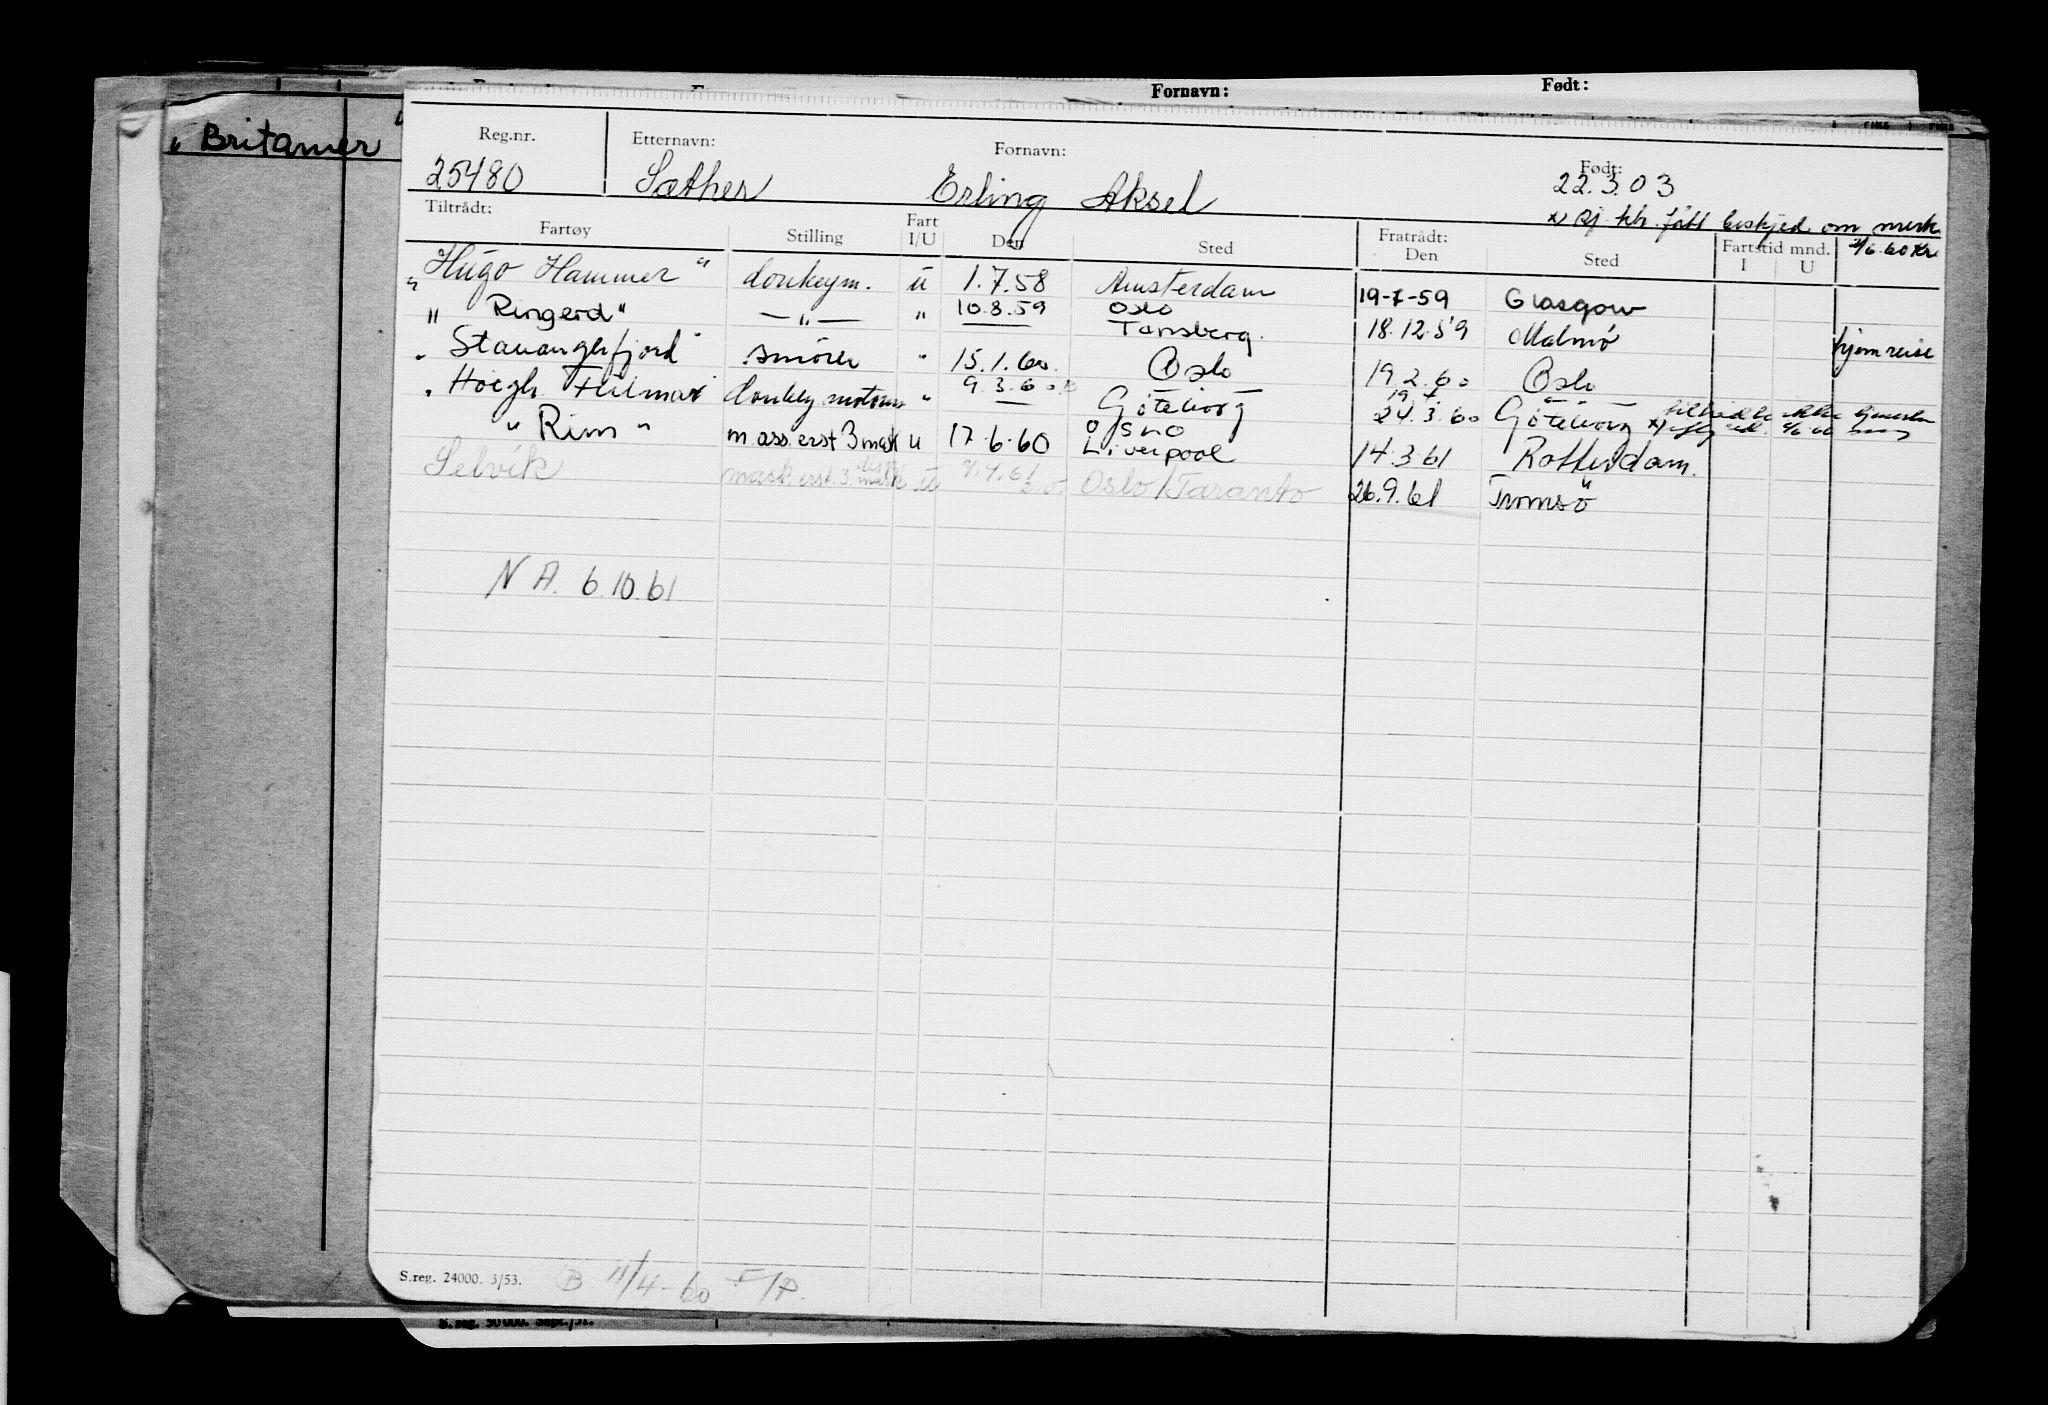 Fornavn: Født:
„Britamer
Reg.nr. Etternavn: Fornavn: Født:
25480 Sæther Erling Aksel 22.3.03
x) Rj. hb. fått beskjed om merk.
Tiltrådt: Fratrådt: Fartstid mnd. 4/6.60 Kr.
Fartøy Stilling Fart I/U Den Sted Den Sted I U
„Hugo Hammer" donkeym. u 1.7.58 Amsterdam 19-7-59 Glasgow
„ Ringerd" —„— „ 10.8.59 Oslo Tønsberg. 18.12.59 Malmö hjemreise
„ Stavangerfjord" smörer „ 15.1.60. Oslo 19 2.60 Oslo
„ Höegh Hilmar donkey motorm „ 9.3.60 Göteborg 24.3.60 Göteborg x)
„ Rim " m ass. erst 3 mask u 17.6.60 Oslo Liverpool 14.3.61 Rotterdam.
Selvik mask. erst. 3. mask u 7.7.61 Oslo/Taranto 26.9.61 Tromsö
N A. 6.10.61
S.reg. 24000. 3/53. B 11/4-60
S.reg. 50000. Sept./51.